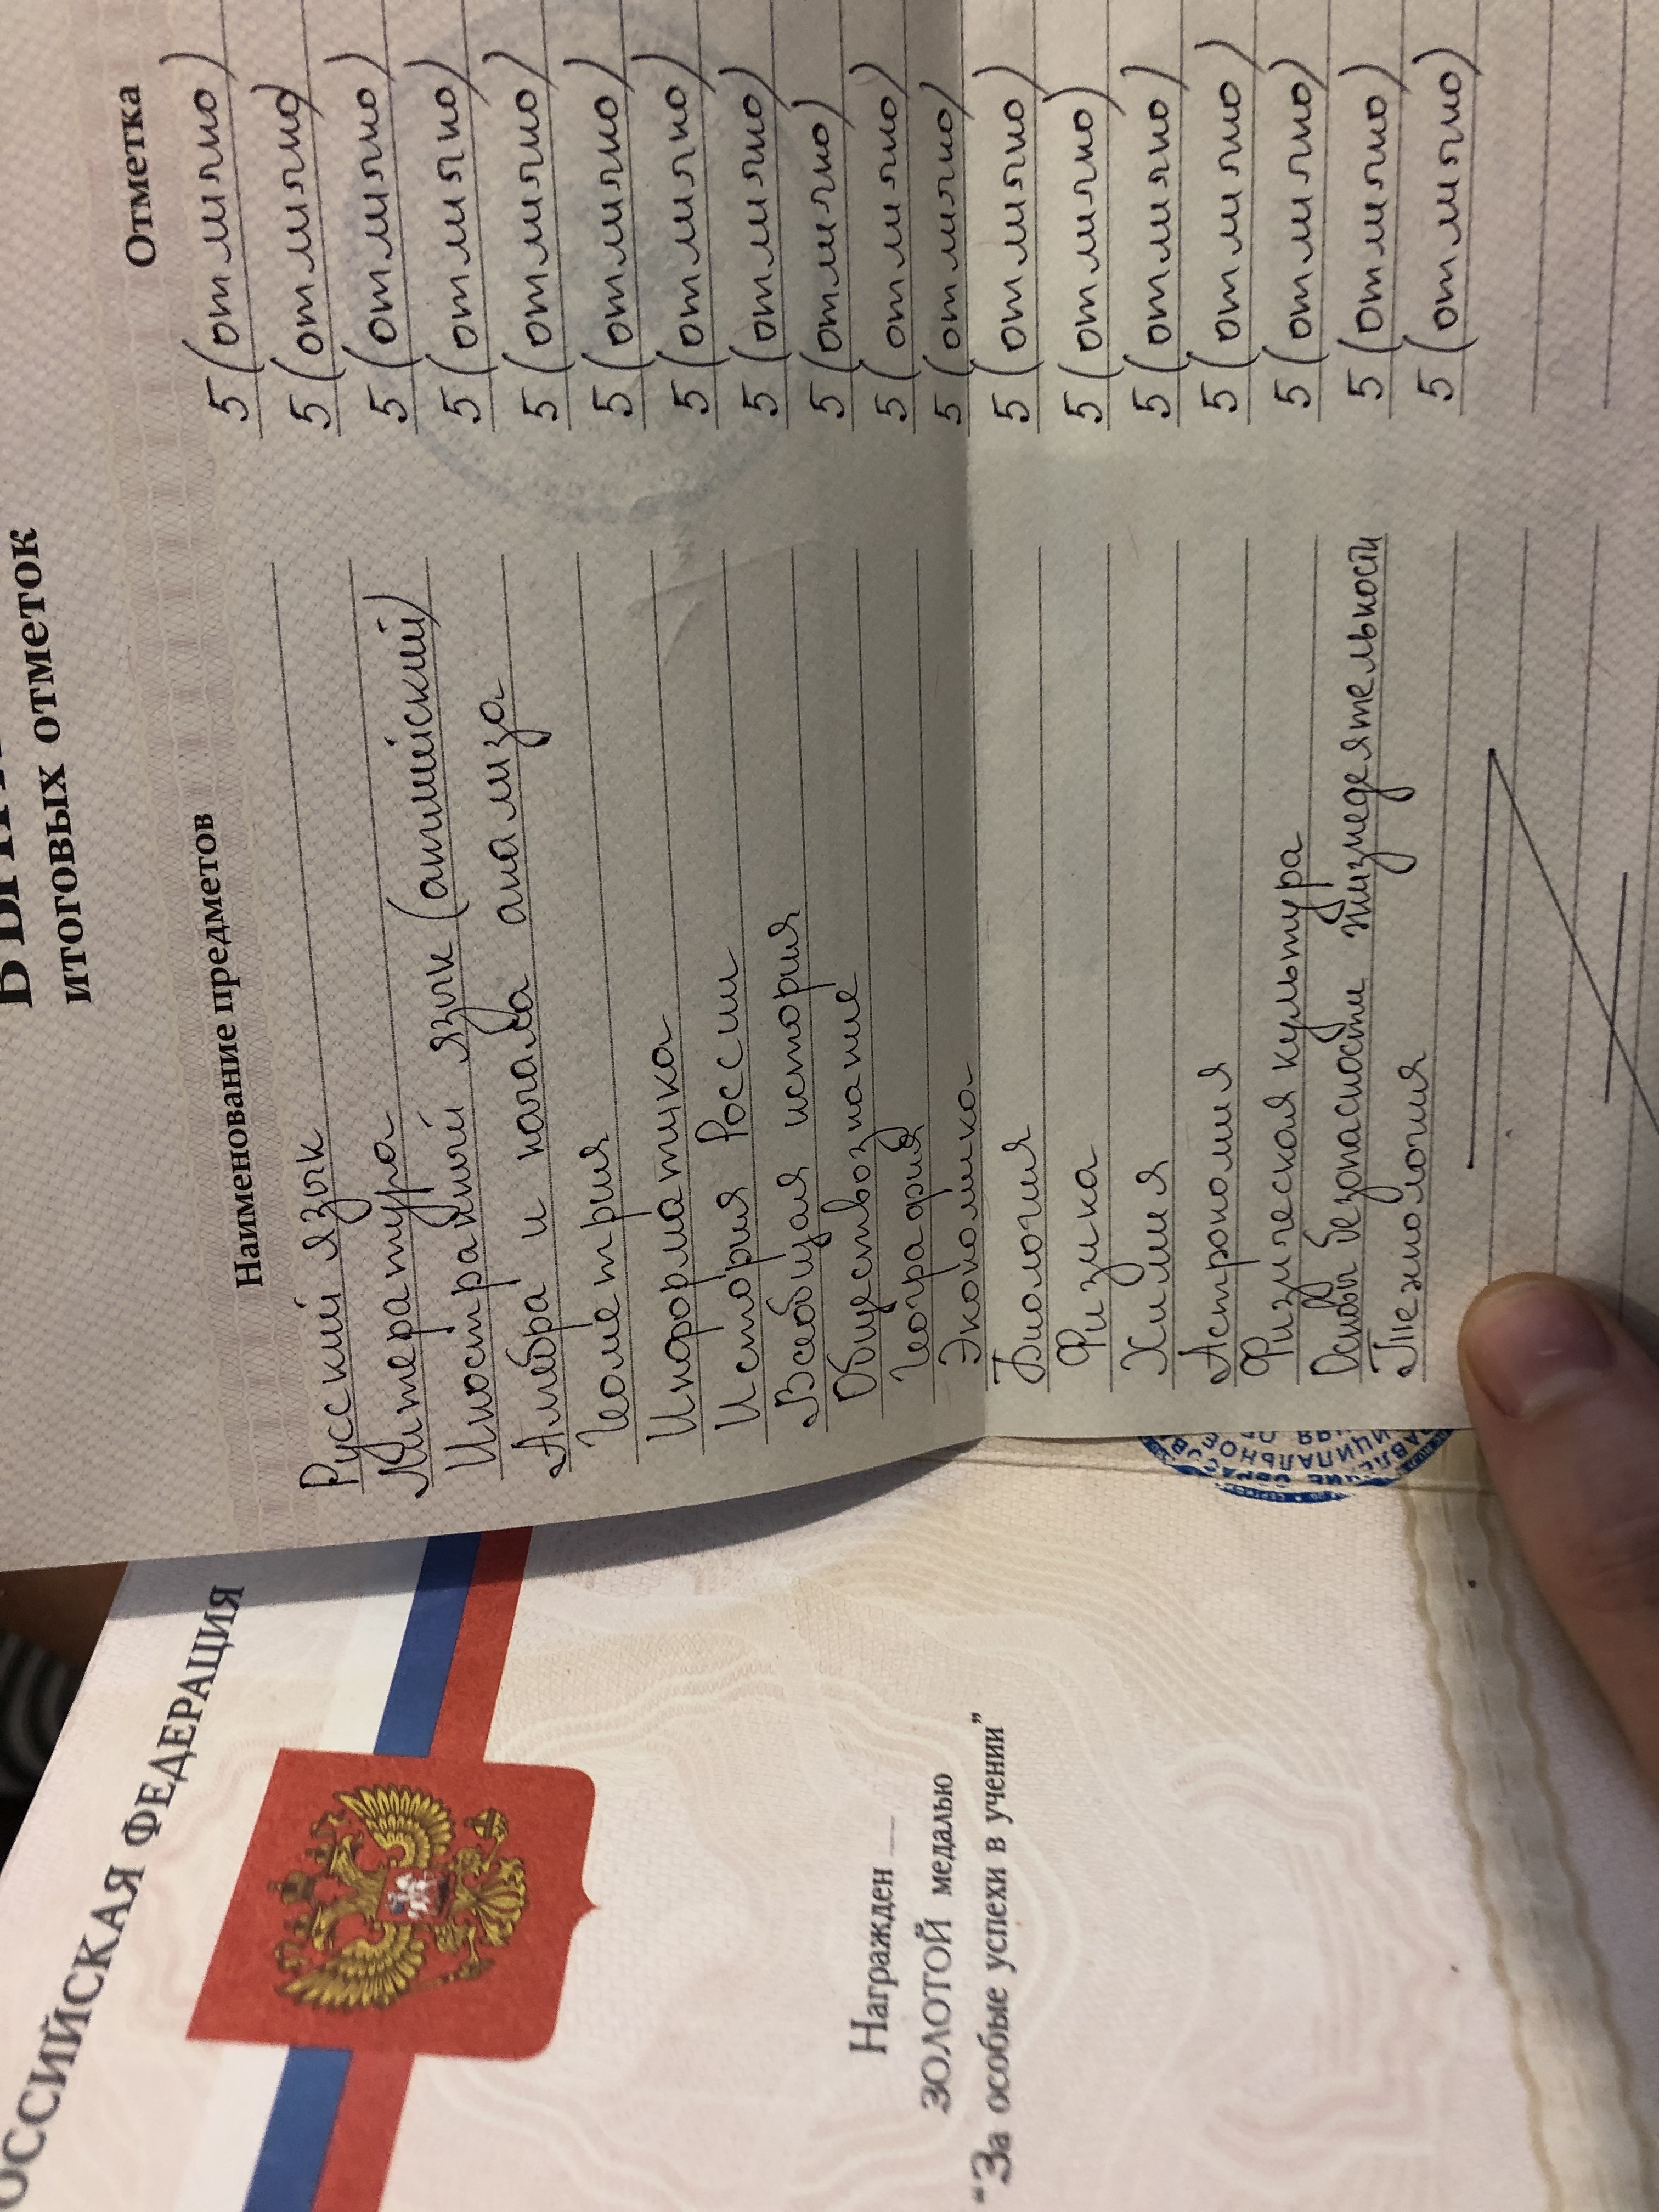 итоговых отметок
Наименование предметов Отметка
Русский язык 5 (отлично)
Литература 5 (отлично)
Иностранный язык (английский) 5 (отлично)
Алгебра и начала анализа 5 (отлично)
Геометрия 5 (отлично)
Информатика 5 (отлично)
История России 5 (отлично)
Всеобщая история 5 (отлично)
Обществознание 5 (отлично)
География 5 (отлично)
Экономика 5 (отлично)
Биология 5 (отлично)
Физика 5 (отлично)
Химия 5 (отлично)
Астрономия 5 (отлично)
Физическая культура 5 (отлично)
Основы безопасности жизнедеятельности 5 (отлично)
Технология 5 (отлично)
ОССИЙСКАЯ ФЕДЕРАЦИЯ
Награжден
ЗОЛОТОЙ медалью
“За особые успехи в учении”